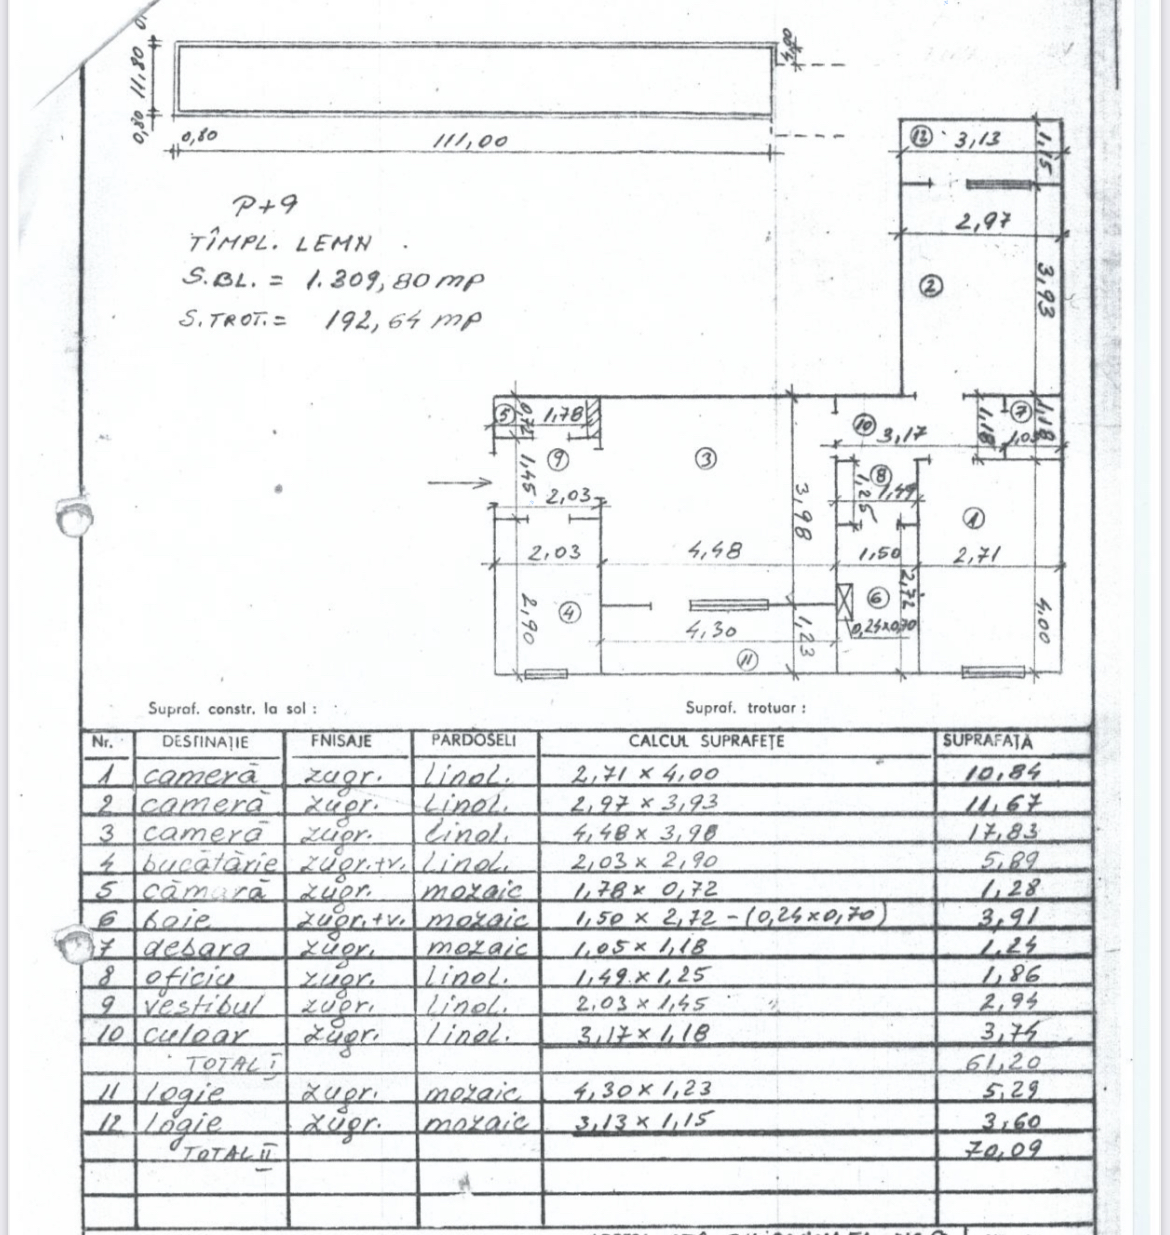 11,80
0,80
0,80
111,00
4,00
P+9
TÎMPL. LEMN
S.BL. = 1.309,80 mp
S.TROT. = 192,64 mp
12 3,13
1,15
2,97
2
3,93
5 0,72 1,78
9
1,45
2,03
3
3,98
10
3,17
1,18
7
1,18
8
1,25
1,49
1
2,03
4,48
1,50
2,71
2,90
4
4,30
1,23
11
6
2,72
0,24x0,70
4,00
Supraf. constr. la sol :
Supraf. trotuar :
Nr. DESTINAȚIE FNISAJE PARDOSELI CALCUL SUPRAFEȚE SUPRAFAȚA
1 cameră zugr. linol. 2,71 x 4,00 10,84
2 cameră zugr. linol. 2,97 x 3,93 11,67
3 cameră zugr. linol. 4,48 x 3,98 17,83
4 bucătărie zugr.+v. linol. 2,03 x 2,90 5,89
5 cămară zugr. mozaic 1,78 x 0,72 1,28
6 baie zugr.+v. mozaic 1,50 x 2,72 - (0,24x0,70) 3,91
7 debara zugr. mozaic 1,05 x 1,18 1.24
8 oficiu zugr. linol. 1,49 x 1,25 1,86
9 vestibul zugr. linol. 2.03 x 1,45 2,94
10 culoar zugr. linol. 3,17 x 1,18 3,74
TOTAL I 61,20
11 logie zugr. mozaic 4,30 x 1,23 5,29
12 logie zugr. mozaic 3,13 x 1,15 3,60
TOTAL II 70,09